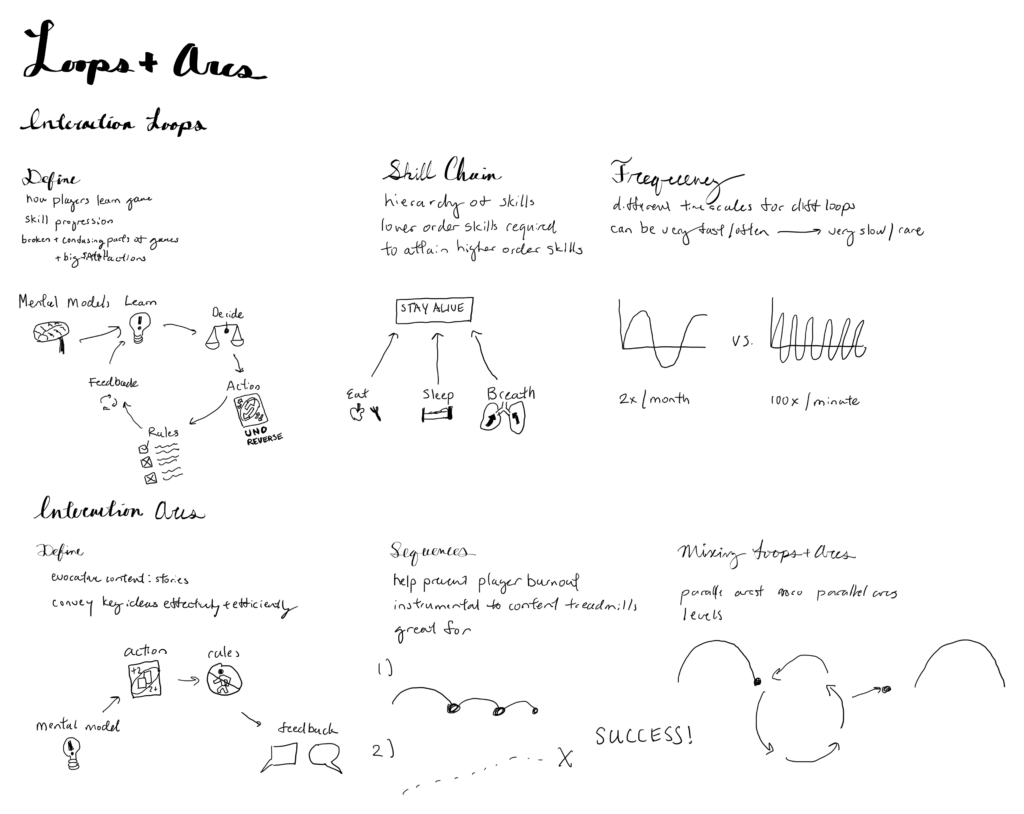 Loops + Arcs
Interaction Loops
Define
how players learn game
skill progression
broken + confusing parts of games
+ big satisfactions
Mental Models
Learn
Decide
Action
UNO
REVERSE
Rules
Feedback
Skill Chain
hierarchy of skills
lower order skills required
to attain higher order skills
STAY ALIVE
Eat
Sleep
Breath
Frequency
different timescales for diff loops
can be very fast/often → very slow/rare
vs.
2x/month
100x/minute
Interaction Arcs
Define
evocative content: stories
convey key ideas effectively + efficiently
action
+2
2+
rules
mental model
feedback
Sequences
help prevent player burnout
instrumental to content treadmills
great for
1)
2)
X
Mixing Loops + Arcs
parallel arcs
parallel arcs
levels
SUCCESS!